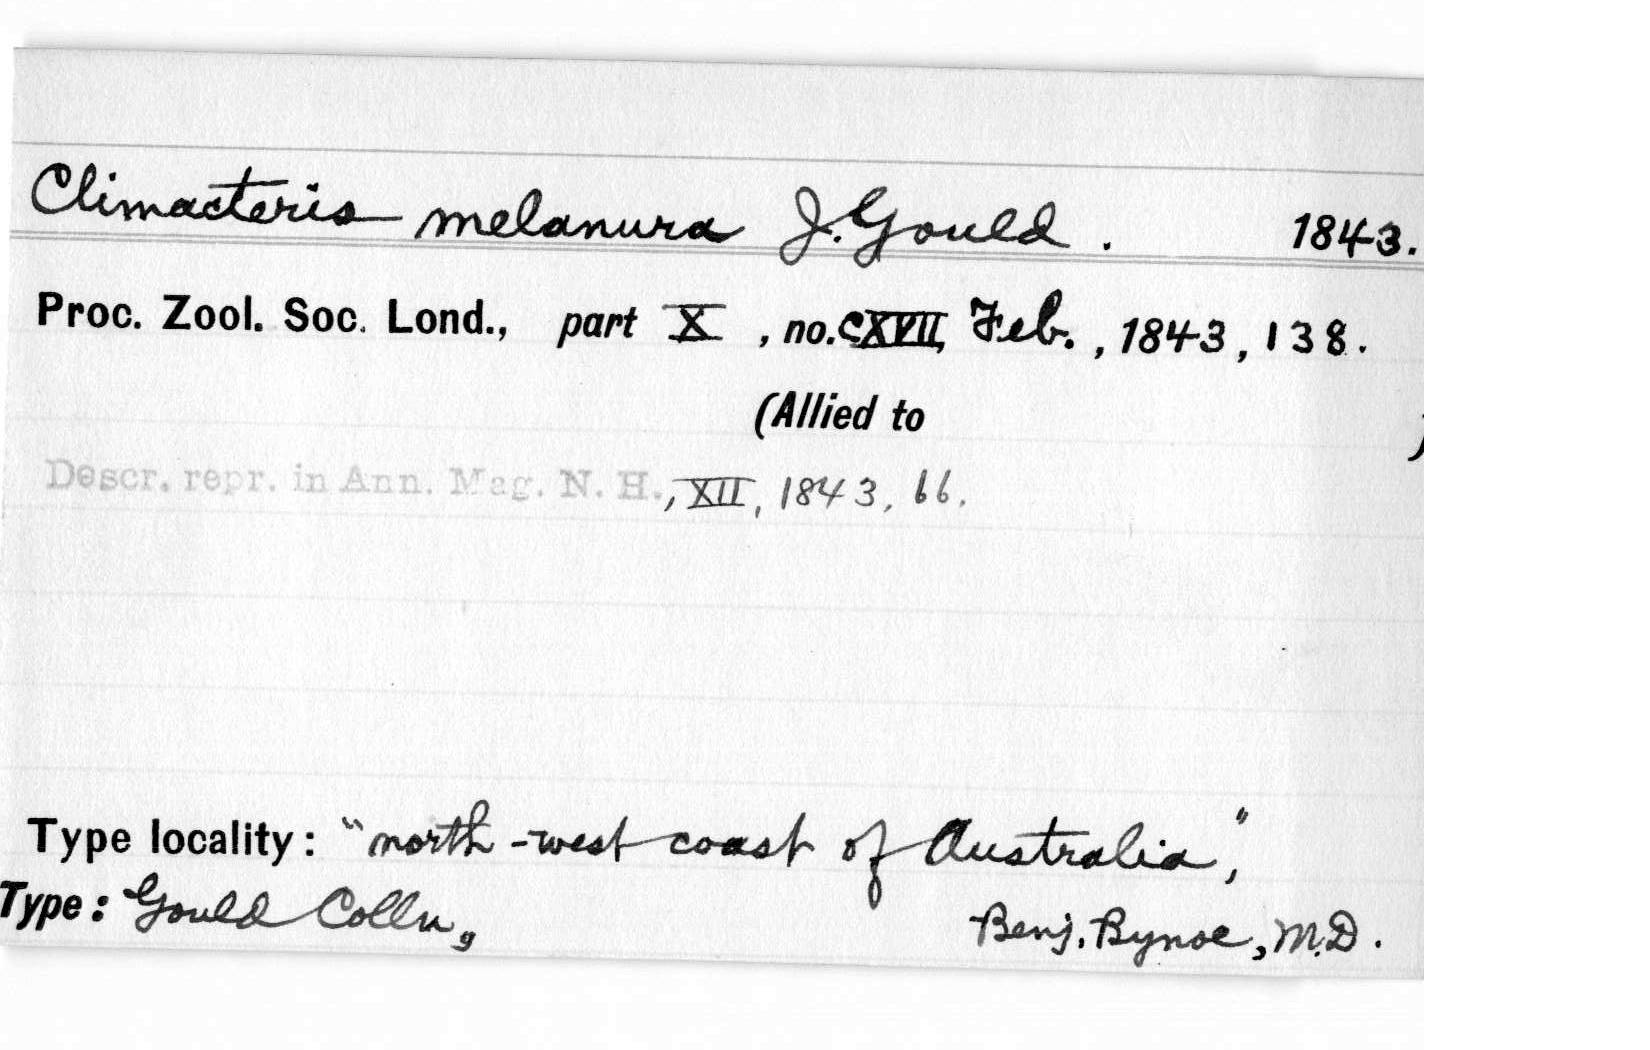 Climacteris melanura J. Gould . 1843.
Proc. Zool. Soc. Lond., part X , no. CXVII, Feb. , 1843 , 138 .
(Allied to )
Descr. repr. in Ann. Mag. N. H., XII, 1843, 66.
Type locality : "north-west coast of Australia",
Type : Gould Colln, Benj. Bynoe, M.D .